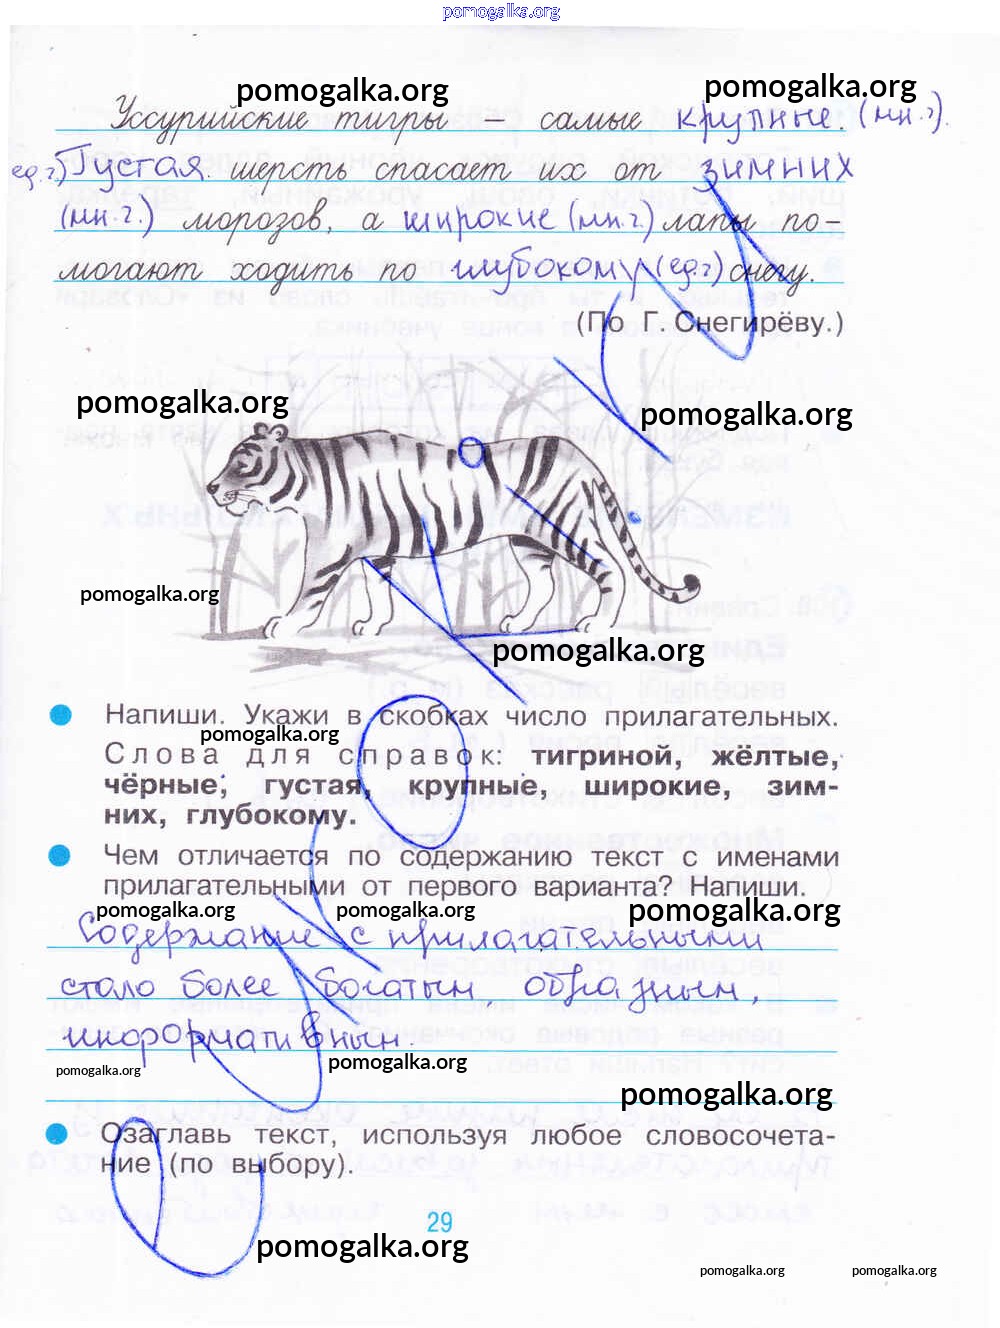 pomogalka.org
pomogalka.org pomogalka.org
Уссурийские тигры – самые крупные. (мн.ч).
ед.ч.) Густая шерсть спасает их от зимних
(мн.ч.) морозов, а широкие (мн.ч.) лапы по-
могают ходить по глубокому (ед.ч) снегу.
(По Г. Снегирёву.)
pomogalka.org
pomogalka.org
pomogalka.org
pomogalka.org
Напиши. Укажи в скобках число прилагательных.
pomogalka.org
Слова для справок: тигриной, жёлтые,
чёрные, густая, крупные, широкие, зим-
них, глубокому.
Чем отличается по содержанию текст с именами
прилагательными от первого варианта? Напиши.
pomogalka.org pomogalka.org pomogalka.org
Содержание с прилагательными
стало более богатым, образным,
информативным.
pomogalka.org pomogalka.org
pomogalka.org
Озаглавь текст, используя любое словосочета-
ние (по выбору).
29
pomogalka.org
pomogalka.org pomogalka.org